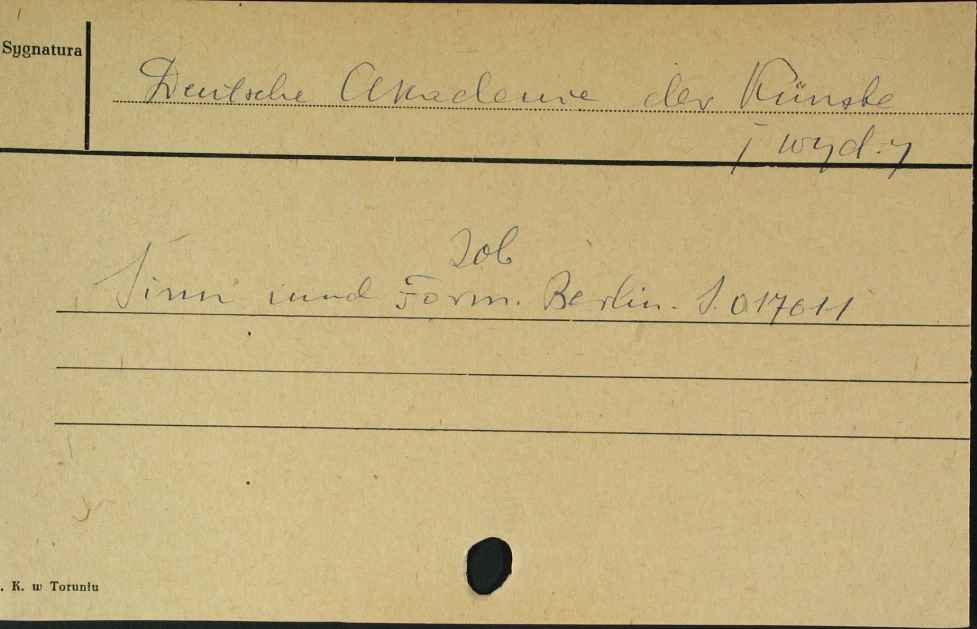 Sygnatura
Deutsche Akademie der Künste
[wyd.]
Zob
Sinn und Form. Berlin. S. 017011
. K. w Toruniu